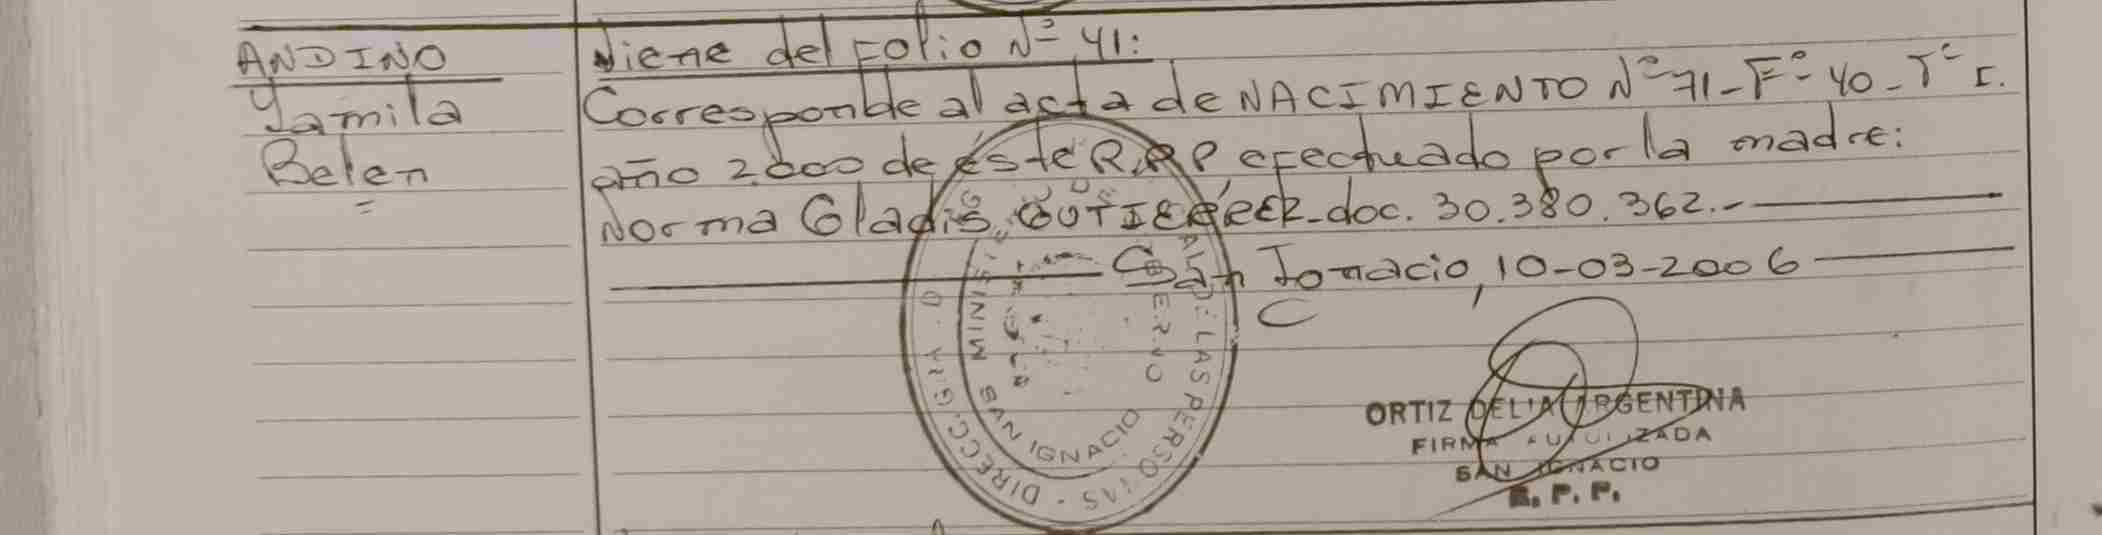 ANDINO
Yamila
Belen
Viene del Folio Nº 41:
Corresponde al acta de NACIMIENTO Nº 71-Fº-40-Tº I.
año 2.000 de éste R.P.P. efectuado por la madre:
Norma Gladis, doc. 30.380.362.-
San Ignacio, 10-03-2006
DE LAS PERSONAS - DIRECCION
SAN IGNACIO
ORTIZ DELIA ARGENTINA
FIRMA AUTORIZADA
SAN IGNACIO
R. P. P.